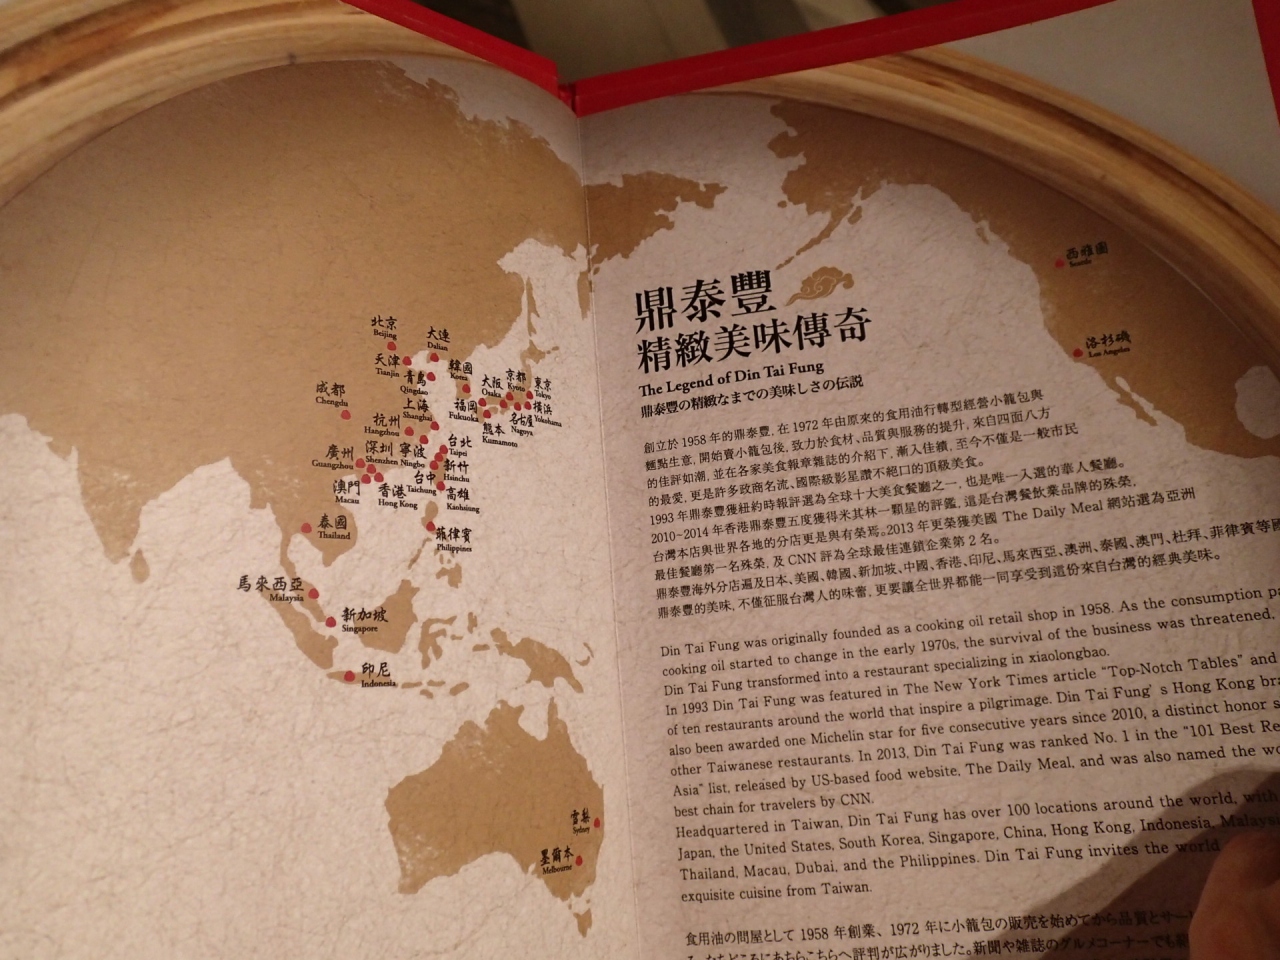 北京
Beijing
大連
Dalian
天津
Tianjin
青島
Qingdao
韓國
Korea
大阪
Osaka
京都
Kyoto
東京
Tokyo
成都
Chengdu
上海
Shanghai
福岡
Fukuoka
橫浜
Yokohama
名古屋
Nagoya
杭州
Hangzhou
熊本
Kumamoto
廣州
Guangzhou
深圳
Shenzhen
寧波
Ningbo
台北
Taipei
新竹
Hsinchu
澳門
Macau
香港
Hong Kong
台中
Taichung
高雄
Kaohsiung
泰國
Thailand
菲律賓
Philippines
馬來西亞
Malaysia
新加坡
Singapore
印尼
Indonesia
雪梨
Sydney
墨爾本
Melbourne
西雅圖
Seattle
洛杉磯
Los Angeles
鼎泰豐
精緻美味傳奇
The Legend of Din Tai Fung
鼎泰豊の精緻なまでの美味しさの伝説
創立於 1958 年的鼎泰豐, 在 1972 年由原來的食用油行轉型經營小籠包與
麵點生意, 開始賣小籠包後, 致力於食材、品質與服務的提升, 來自四面八方
的佳評如潮, 並在各家美食報章雜誌的介紹下, 漸入佳績, 至今不僅是一般市民
的最愛, 更是許多政商名流、國際級影星讚不絕口的頂級美食。
1993 年鼎泰豐獲紐約時報評選為全球十大美食餐廳之一, 也是唯一入選的華人餐廳。
2010~2014 年香港鼎泰豐五度獲得米其林一顆星的評鑑, 這是台灣餐飲業品牌的殊榮,
台灣本店與世界各地的分店更是與有榮焉。2013 年更榮獲美國 The Daily Meal 網站選為亞洲
最佳餐廳第一名殊榮, 及 CNN 評為全球最佳連鎖企業第 2 名。
鼎泰豐海外分店遍及日本、美國、韓國、新加坡、中國、香港、印尼、馬來西亞、澳洲、泰國、澳門、杜拜、菲律賓等
鼎泰豐的美味, 不僅征服台灣人的味蕾, 更要讓全世界都能一同享受到這份來自台灣的經典美味。
Din Tai Fung was originally founded as a cooking oil retail shop in 1958. As the consumption
cooking oil started to change in the early 1970s, the survival of the business was threatened.
Din Tai Fung transformed into a restaurant specializing in xiaolongbao.
In 1993 Din Tai Fung was featured in The New York Times article "Top-Notch Tables" and
of ten restaurants around the world that inspire a pilgrimage. Din Tai Fung's Hong Kong
also been awarded one Michelin star for five consecutive years since 2010, a distinct honor
other Taiwanese restaurants. In 2013, Din Tai Fung was ranked No. 1 in the "101 Best
Asia" list, released by US-based food website, The Daily Meal, and was also named the
best chain for travelers by CNN.
Headquartered in Taiwan, Din Tai Fung has over 100 locations around the world, with
Japan, the United States, South Korea, Singapore, China, Hong Kong, Indonesia,
Thailand, Macau, Dubai, and the Philippines. Din Tai Fung invites the world
exquisite cuisine from Taiwan.
食用油の問屋として 1958 年創業、1972 年に小籠包の販売を始めてから品質とサー